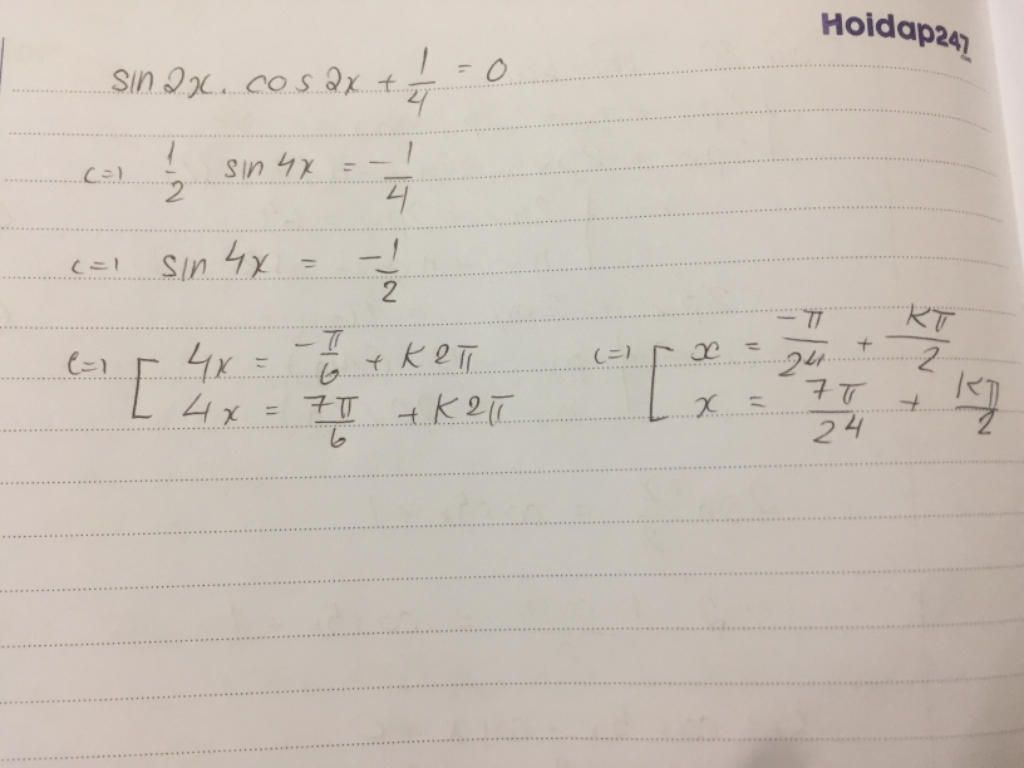 Hoidap247
.com
sin2x. cos2x + 1/4 = 0
<=> 1/2 sin 4x = -1/4
<=> sin 4x = -1/2
<=> [ 4x = -π/6 + K2π <=> [ x = -π/24 + Kπ/2
4x = 7π/6 + K2π x = 7π/24 + Kπ/2